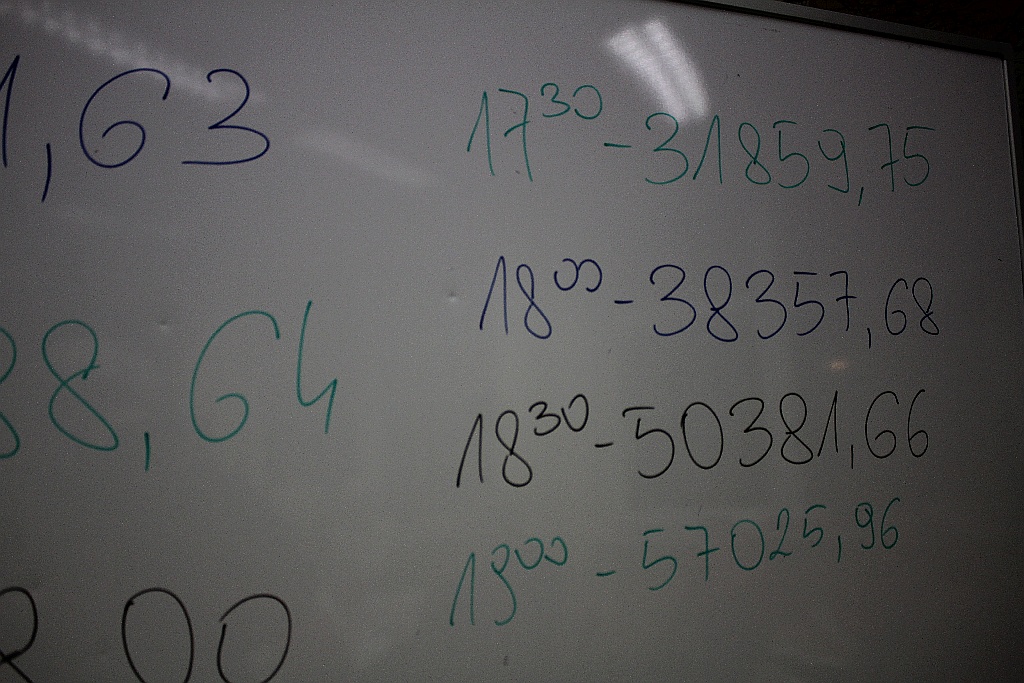 1,63
38,64
00
17³⁰ - 31859,75
18⁰⁰ - 38357,68
18³⁰ - 50381,66
19⁰⁰ - 57025,96